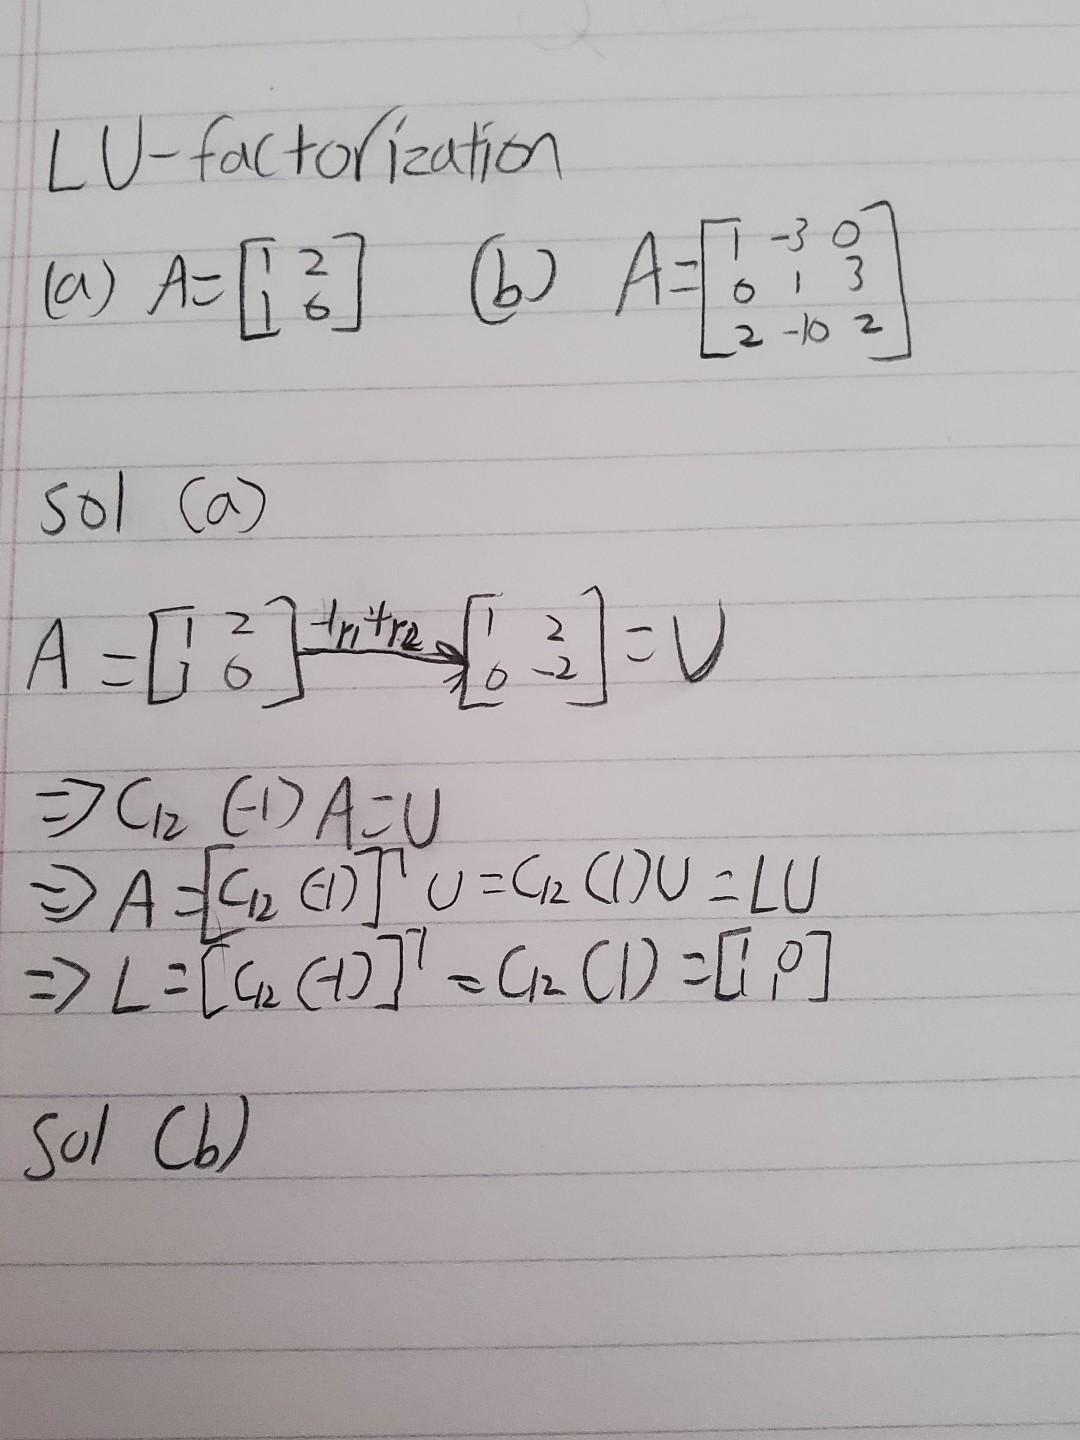 LU-factorization
(a) A=[1 2 1 6] (b) A=[1 -3 0 0 1 3 2 -10 2]
sol (a)
A=[1 2 1 0] -1r1+r2 → [1 2 0 -2] = U
⇒ C12 (-1) A=U
⇒ A=[C12 (-1)]^-1 U=C12 (1)U=LU
⇒ L=[C12 (-1)]^-1 = C12 (1) =[1 0 1 1]
sol (b)